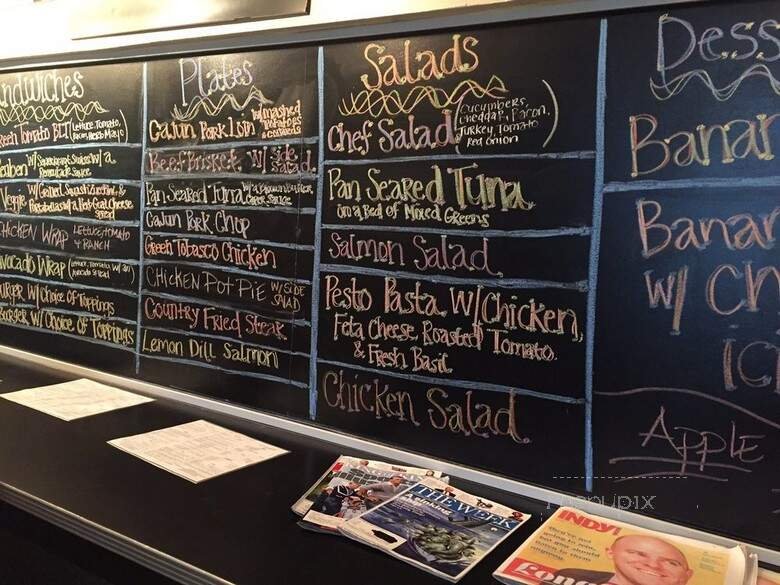 ndwiches
reen Tomato BLT (Lettuce, Tomato,
Bacon, Herb Mayo)
euben w/ Sauerkraut Swiss w/ a
Remoulade Sauce
Veggie w/ Grilled Squash Zucchini &
Portabella w/ a Herb Goat Cheese
Spread
hicken Wrap Lettuce/Tomato
& Ranch
vocado Wrap (Lettuce, Tomato w/ an
Avocado Spread)
urger w/ Choice of Toppings
urger w/ Choice of Toppings
Plates
Cajun Pork Loin w/ mashed
Potatoes
& Collards
Beef Brisket w/ side
salad
Pan Seared Tuna w/ a Brown Butter
Caper Sauce
Cajun Pork Chop
Green Tobasco Chicken
Chicken Pot Pie w/ side
salad
Country Fried Steak
Lemon Dill Salmon
Salads
Chef Salad (Cucumbers,
Cheddar, Bacon,
Turkey, Tomato
Red Onion)
Pan Seared Tuna
on a Bed of Mixed Greens
Salmon Salad
Pesto Pasta w/ Chicken,
Feta Cheese, Roasted Tomato
& Fresh Basil
Chicken Salad
Dess
Banan
Banan
w/ Ch
Ic
Apple
THE WEEK
INDY